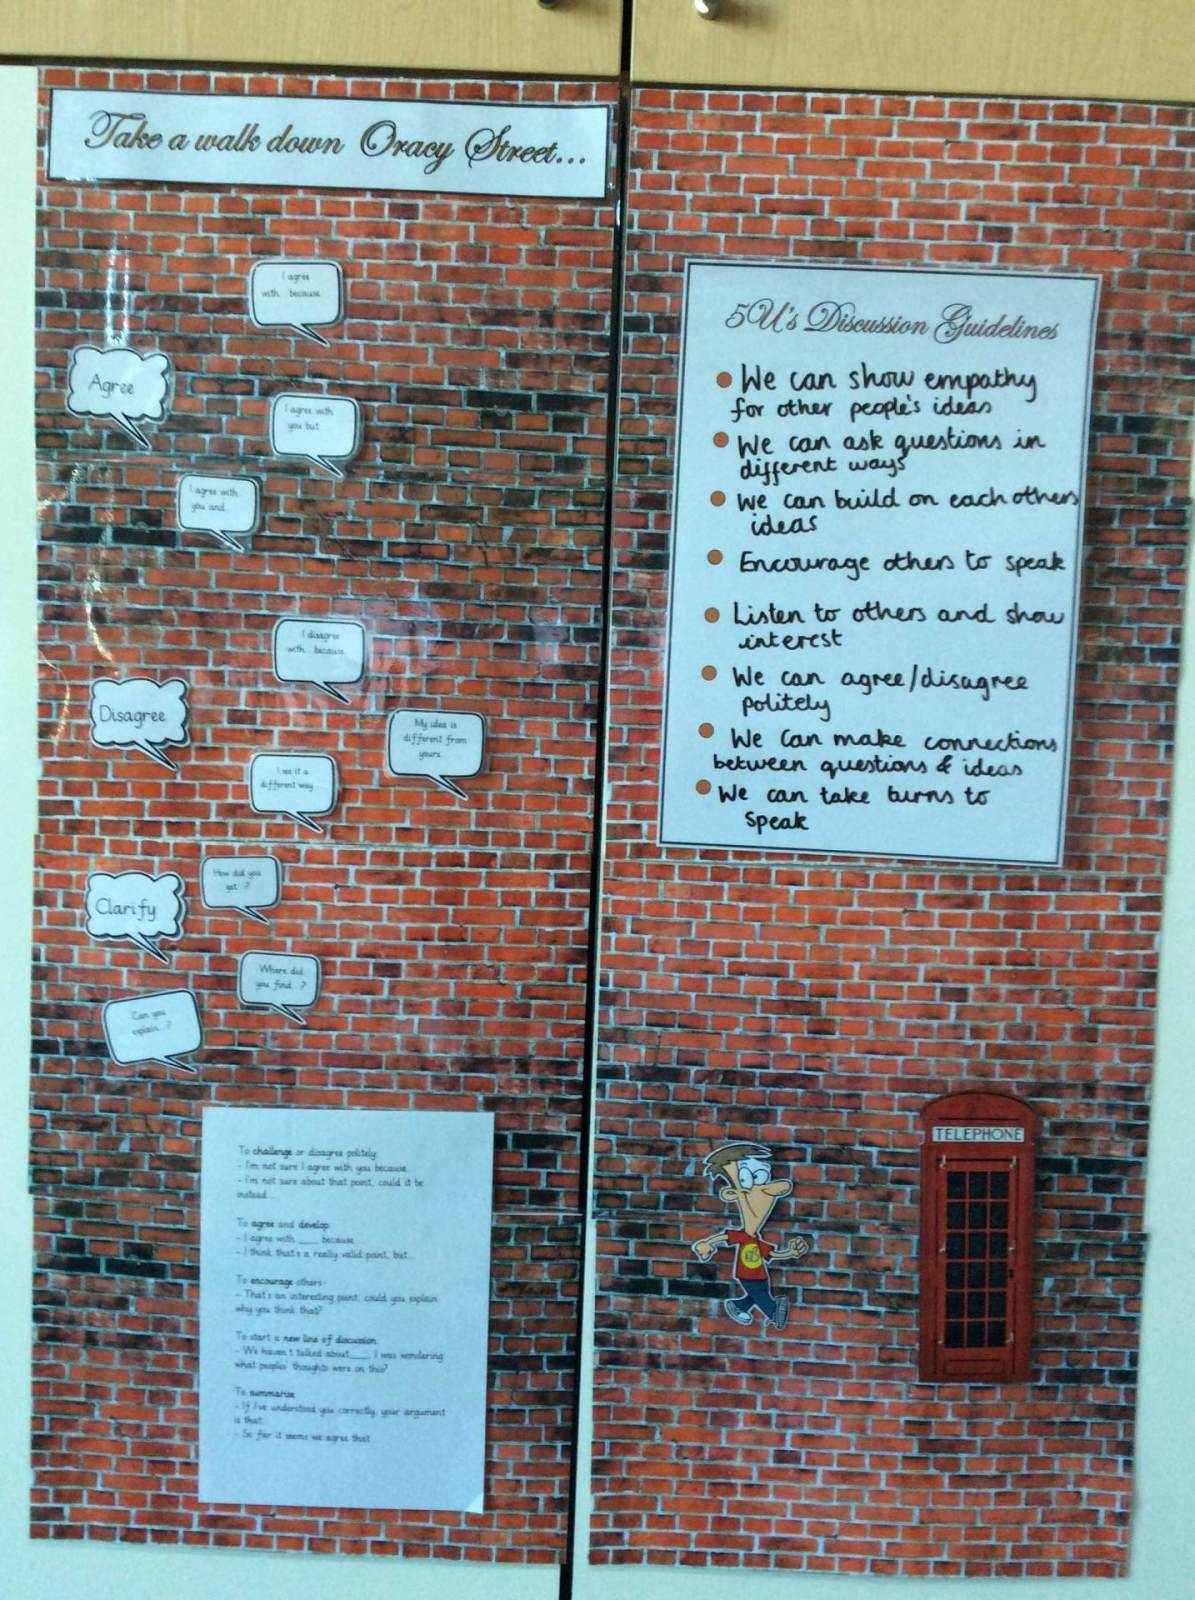 Take a walk down Oracy Street...
I agree
with... because...
Agree
I agree with
you but...
I agree with
you and...
I disagree
with... because...
Disagree
My idea is
different from
yours...
I see it a
different way
Clarify
How did you
get...?
Where did
you find...?
Can you
explain...?
To challenge or disagree politely:
- I'm not sure I agree with you because...
- I'm not sure about that point, could it be
instead...
To agree and develop:
- I agree with ____ because
- I think that's a really valid point, but...
To encourage others:
- That's an interesting point, could you explain
why you think that?
To start a new line of discussion:
- We haven't talked about____, I was wondering
what peoples' thoughts were on this?
To summarise:
- If I've understood you correctly, your argument
is that...
- So far, it seems we agree that...
5U's Discussion Guidelines
We can show empathy
for other people's ideas
We can ask questions in
different ways
We can build on each others
ideas
Encourage others to speak
Listen to others and show
interest
We can agree/disagree
politely
We can make connections
between questions & ideas
We can take turns to
speak
TELEPHONE